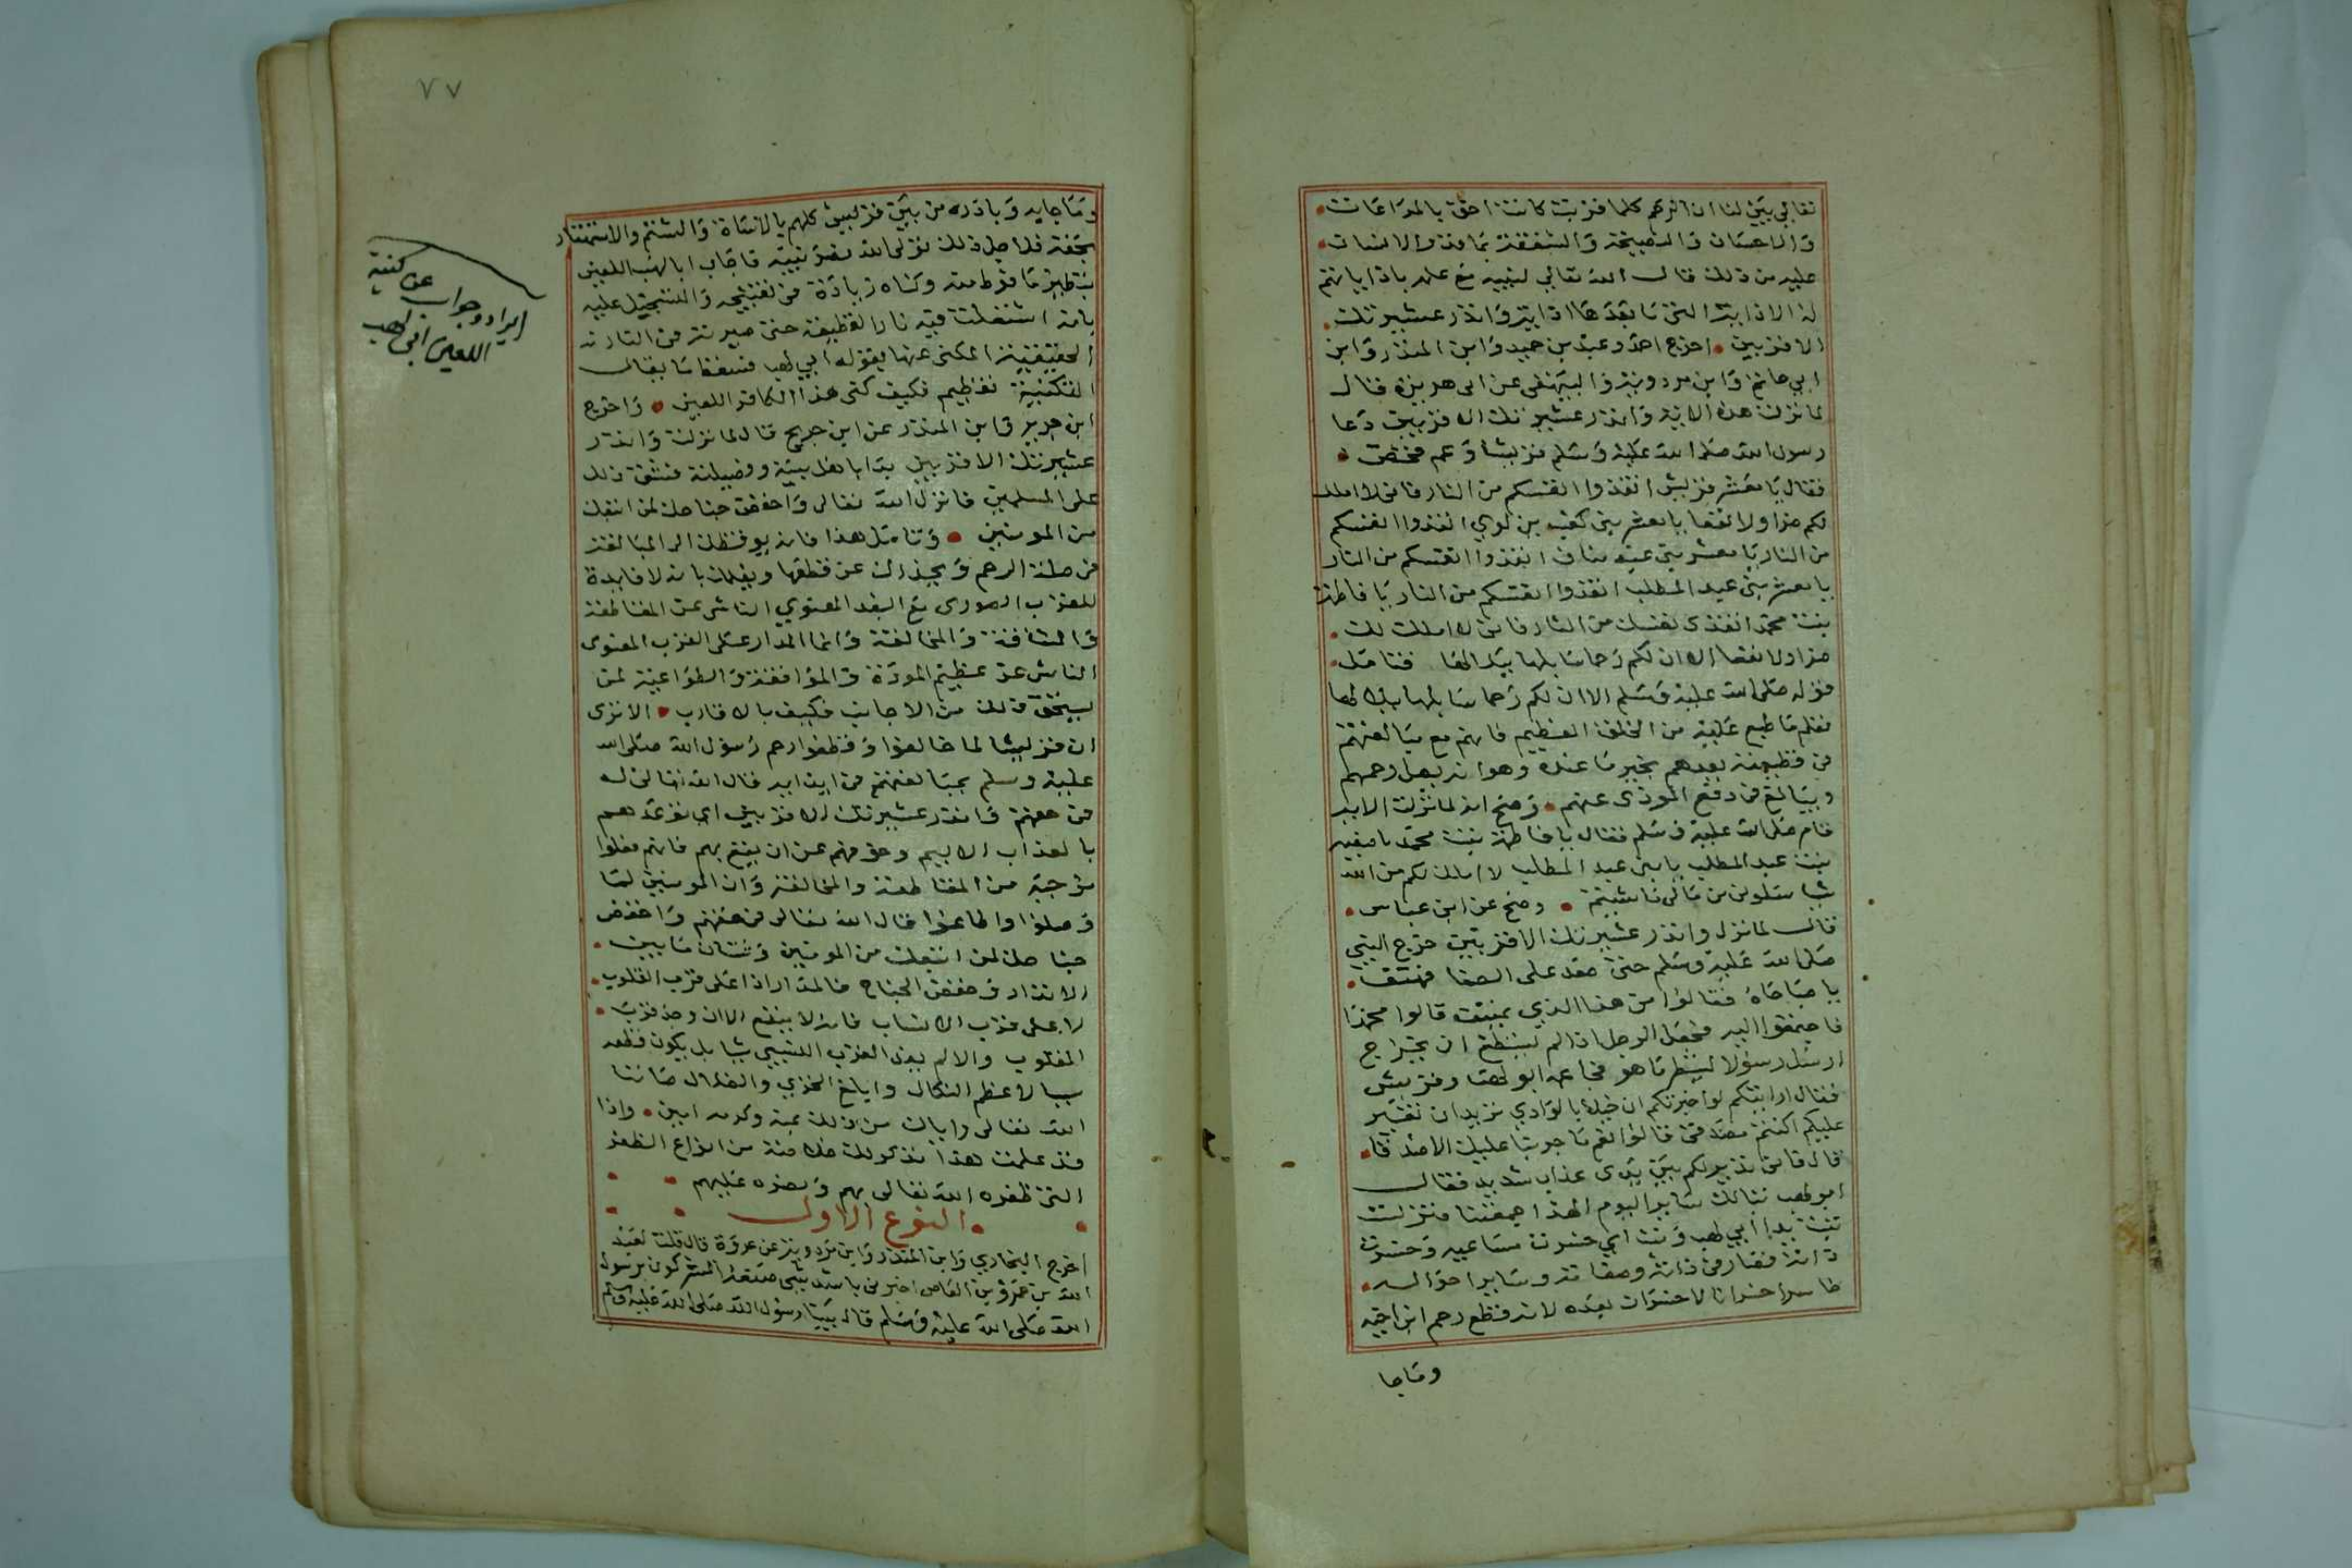 تعالى بين لنا ان الرحم كلما قربت كانت احق بالمراعات
والاحسان والنصيحة والشفقة
عليه من ذلك قال الله تعالى لنبيه مع علمه باذايانهم
له الاذاية التي ما بعدها اذاية وانذر عشيرتك
الاقربين اخرج احمد وعبد بن حميد وابن المنذر وابن
ابي حاتم وابن مردويه والبيهقي عن ابي هريرة قال
لما نزلت هذه الاية وانذر عشيرتك الاقربين دعا
رسول الله صلى الله عليه وسلم قريشا وعم فخص
فقال يا معشر قريش انقذوا انفسكم من النار فاني لا املك
لكم ضرا ولا نفعا يا معشر بني كعب بن لوي انقذوا انفسكم
من النار يا معشر بني عبد مناف انقذوا انفسكم من النار
يا معشر بني عبد المطلب انقذوا انفسكم من النار يا فاطمة
بنت محمد انقذي نفسك من النار فاني لا املك لك
ضرا ولا نفعا الا ان لكم رحما سابلها ببلالها فتامل
قوله صلى الله عليه وسلم الا ان لكم رحما سابلها ببلالها
تعلم ما طبع عليه من الخلق العظيم فانهم مع مبالغتهم
في قطيعته يعدهم بخير ما عنده وهو انه يصل رحمهم
ويبالغ في دفع الموذى عنهم وصح انه لما نزلت الاية
قام صلى الله عليه وسلم فقال يا فاطمة بنت محمد يا صفية
بنت عبد المطلب يا بني عبد المطلب لا املك لكم من الله
شيا سلوني من مالي ما شيتم وصح عن ابن عباس
قال لما نزل وانذر عشيرتك الاقربين خرج النبي
صلى الله عليه وسلم حتى صعد على الصفا فهتف
يا صباحاه فقالوا من هذا الذي يهتف قالوا محمد
فاجتمعوا اليه فجعل الرجل اذا لم يستطع ان يخرج
ارسل رسولا لينظر ما هو فجا عمه ابو لهب وقريش
فقال ارايتكم لو اخبرتكم ان خيلا بالوادي تريد ان تغير
عليكم اكنتم مصدقي قالوا نعم ما جربنا عليك الا صدقا
قال فاني نذير لكم بين يدي عذاب شديد فقال
ابو لهب تبا لك ساير اليوم الهذا جمعتنا فنزلت
تبت يدا ابي لهب وتب اي خسرت مساعيه وخسرت
ذاته فصار في ذاته وصفاته وساير احواله
خاسرا خسرانا لا خسران بعده لانه قطع رحم ابن اخيه
وما جا
٧٧
وما جا به وبادره من بين قريش كلهم بالاساة والشتم والاستهتار
بحقه فلاجل ذلك تولى الله نصر نبيه فاجاب ابا لهب اللعين
بنظير ما فرط منه وكساه زيادة في تقبيحه والتسجيل عليه
بانه اشتعلت فيه نار القطيعة حتى صيرته من النارية
الحقيقية المكنى عنها بقوله ابي لهب فسقط ما يقال
التكنية تعظيم فكيف كنى هذا الكافر اللعين واخرج
ابن جرير وابن المنذر عن ابن جريج قال لما نزلت وانذر
عشيرتك الاقربين بدا باهل بيته وفصيلته فشق ذلك
على المسلمين فانزل الله تعالى واخفض جناحك لمن اتبعك
من المومنين وتامل هذا فانه يوقظك الى المبالغة
في صلة الرحم ويحذرك عن قطعها ويعلمك بانه لا فايدة
للقرب الصوري مع البعد المعنوي الناشي عن المقاطعة
والمشاققة والمخالفة وانما المدار على القرب المعنوي
الناشي عن عظيم المودة والموافقة والطواعية لمن
يستحق ذلك من الاجانب فكيف بالاقارب الا ترى
ان قريشا لما خالفوا وقطعوا رحم رسول الله صلى الله
عليه وسلم بمبالغتهم في ايذايه قال الله تعالى له
في حقهم وانذر عشيرتك الاقربين اي توعدهم
بالعذاب الاليم وخوفهم عن ان يقع بهم فانهم فعلوا
موجبه من المقاطعة والمخالفة وان المومنين لما
وصلوا واطاعوا قال الله تعالى في حقهم واخفض
جناحك لمن اتبعك من المومنين وشتان ما بين
الانذار وخفض الجناح فالمدار اذا على قرب القلوب
لا على قرب الانساب فانه لا ينفع الا ان وجد قرب
القلوب والا لم يفد القرب النسبي شيا بل يكون قطعه
سببا لاعظم النكال وابلغ الخزي والضلال صاننا
الله تعالى واياك من ذلك بمنه وكرمه امين واذا
قد علمت هذا نذكر لك خلاصة من انواع الظفر
التي ظفره الله تعالى بهم ونصره عليهم
النوع الاول
اخرج البخاري وابن المنذر وابن مردويه عن عروة قال قلت لعبد
الله بن عمرو بن العاص اخبرني باشد شي صنعه المشركون برسول
الله صلى الله عليه وسلم قال بينا رسول الله صلى الله عليه وسلم
ايراد وجواب عن كنية
اللعين ابي لهب